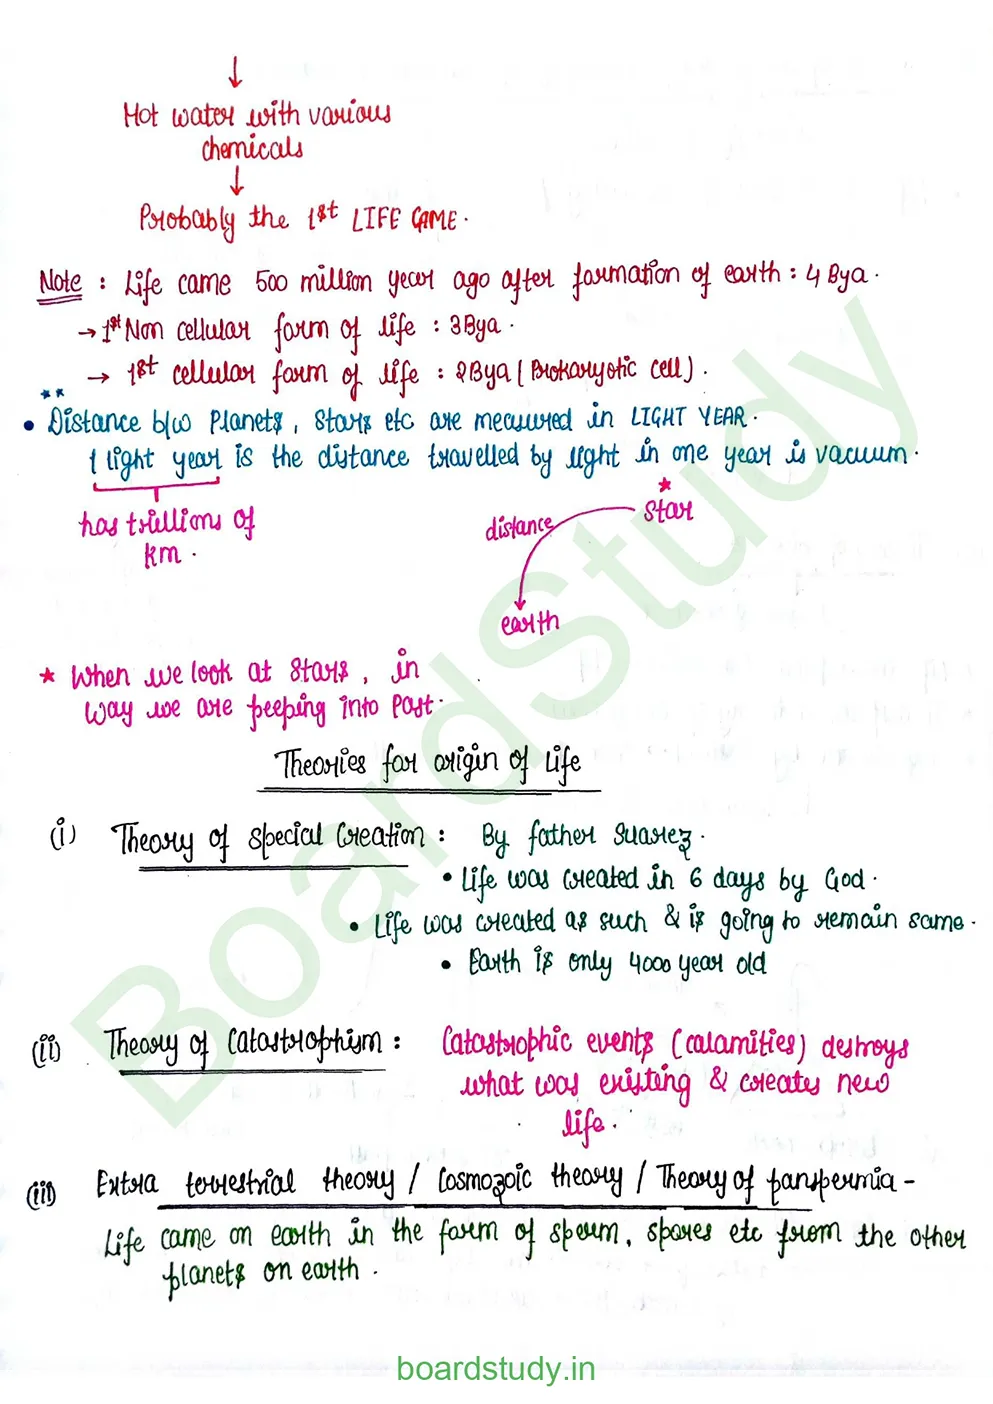 ↓
Hot water with various
chemicals
↓
Probably the 1st LIFE CAME.
Note : Life came 500 million year ago after formation of earth : 4 Bya.
→ 1st Non cellular form of life : 3Bya.
→ 1st cellular form of life : 2Bya (Prokaryotic cell).
• Distance b/w Planets, Stars etc are measured in LIGHT YEAR.
1 light year is the distance travelled by light in one year is vacuum.
has trillions of
km.
★ Star
distance
earth
★ When we look at Stars, in
way we are peeping into Past.
Theories for origin of Life
(i) Theory of Special Creation : By father Suarez.
• Life was created in 6 days by God.
• Life was created as such & is going to remain same.
• Earth is only 4000 year old
(ii) Theory of Catastrophism : Catastrophic events (calamities) destroys
what was existing & creates new
life.
(iii) Extra terrestrial theory / Cosmozoic theory / Theory of panspermia -
Life came on earth in the form of sperm, spores etc from the other
planets on earth.
BoardStudy
boardstudy.in